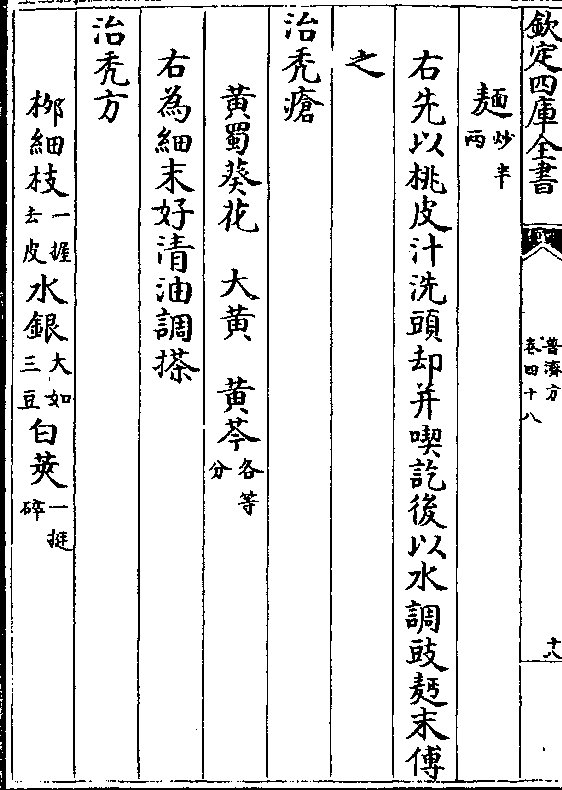 欽定四庫全書
普濟方
卷四十八
十八
麵炒半兩
右先以桃皮汁洗頭却并喫訖後以水調豉麪末傅
之
治禿瘡
黄蜀葵花 大黄 黄芩各等分
右為細末好清油調搽
治禿方
桞細枝一握去皮水銀大如三豆皂莢一挺碎